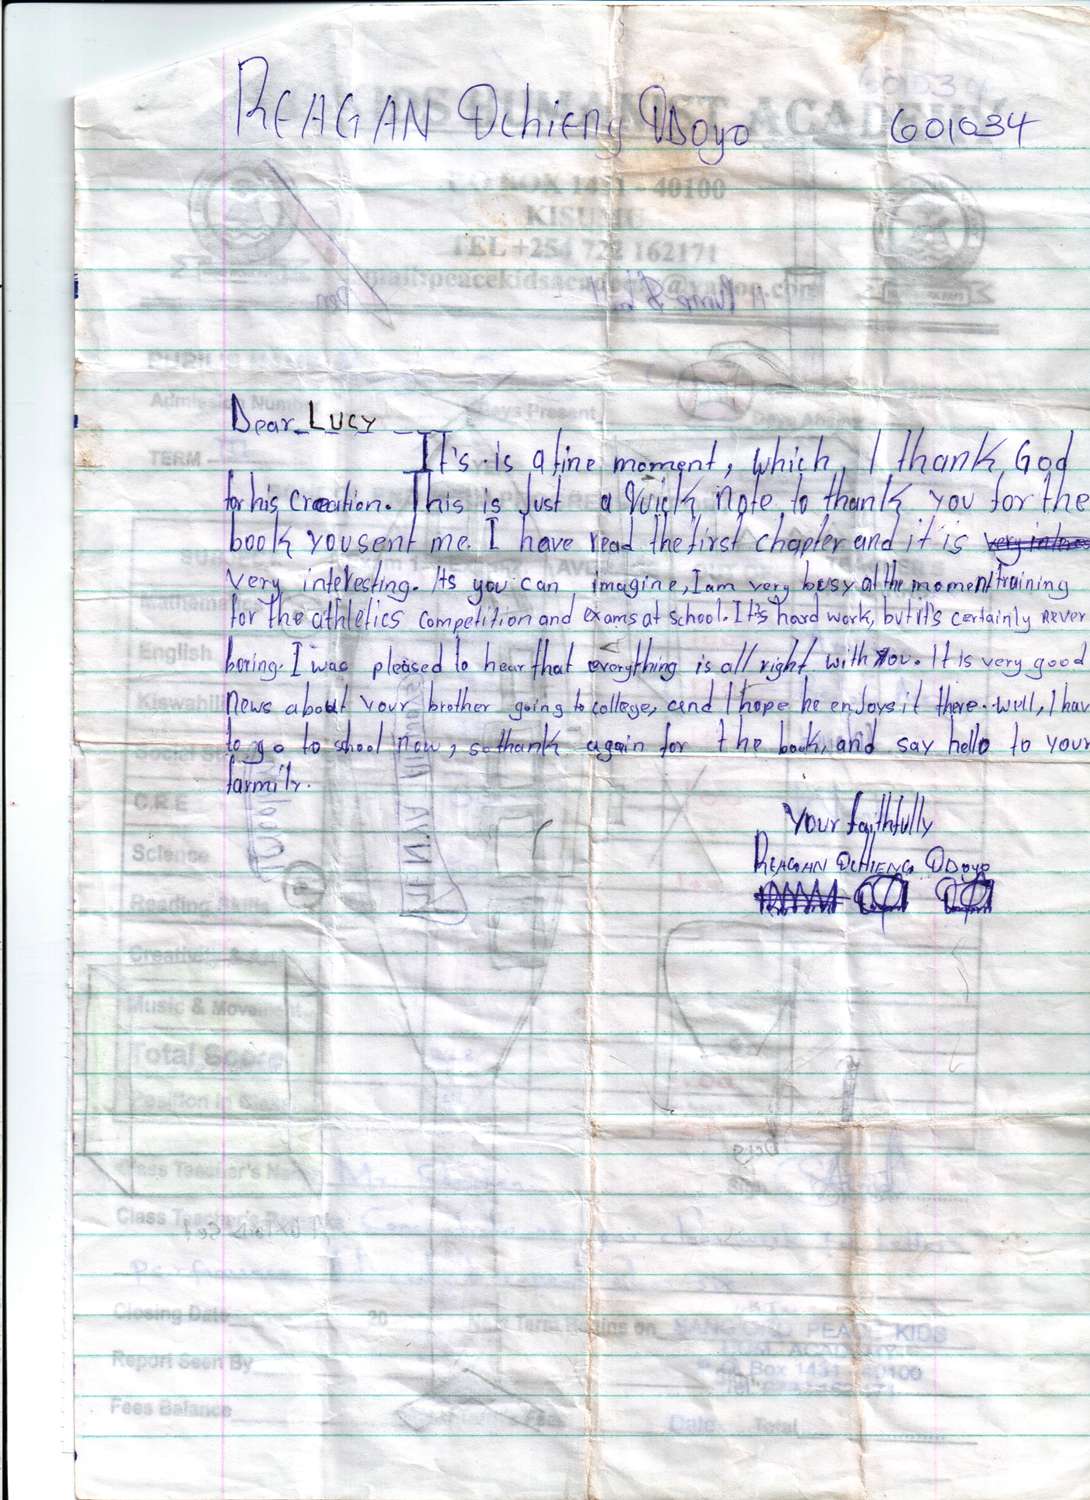 REAGAN Ochieng ODoyo 601034
KIDS ACADEMY
BOX 1431 - 40100
KISUMU
TEL +254 722 162171
Dear LUCY
It's is a fine moment, which, I thank God
for his Creation. This is just a quick note to thank you for the
book you sent me. I have read the first chapter and it is very interes
very interesting. Its you can imagine, I am very busy at the moment training
for the athletics competition and exams at school. It's hard work, but it's certainly never
boring. I was pleased to hear that everything is all right with you. It is very good
news about your brother going to college, and I hope he enjoys it there. Well, I hav
to go to school now, so thank again for the book, and say hello to your
farmily.
Your faithfully
REAGAN OCHIENG ODoyo
Admission Number Days Present
TERM
Mathematics
English
Kiswahili
C.R.E
Science
Reading Skills
Music & Movement
Total Score
Position in Class
Class Teacher's Name
Class Teacher's Remarks
Closing Date 20 Next Term Begins on
PEACE KIDS
ACADEMY
P.O. Box 1431 - 40100
Report Seen By
Fees Balance
Date Total